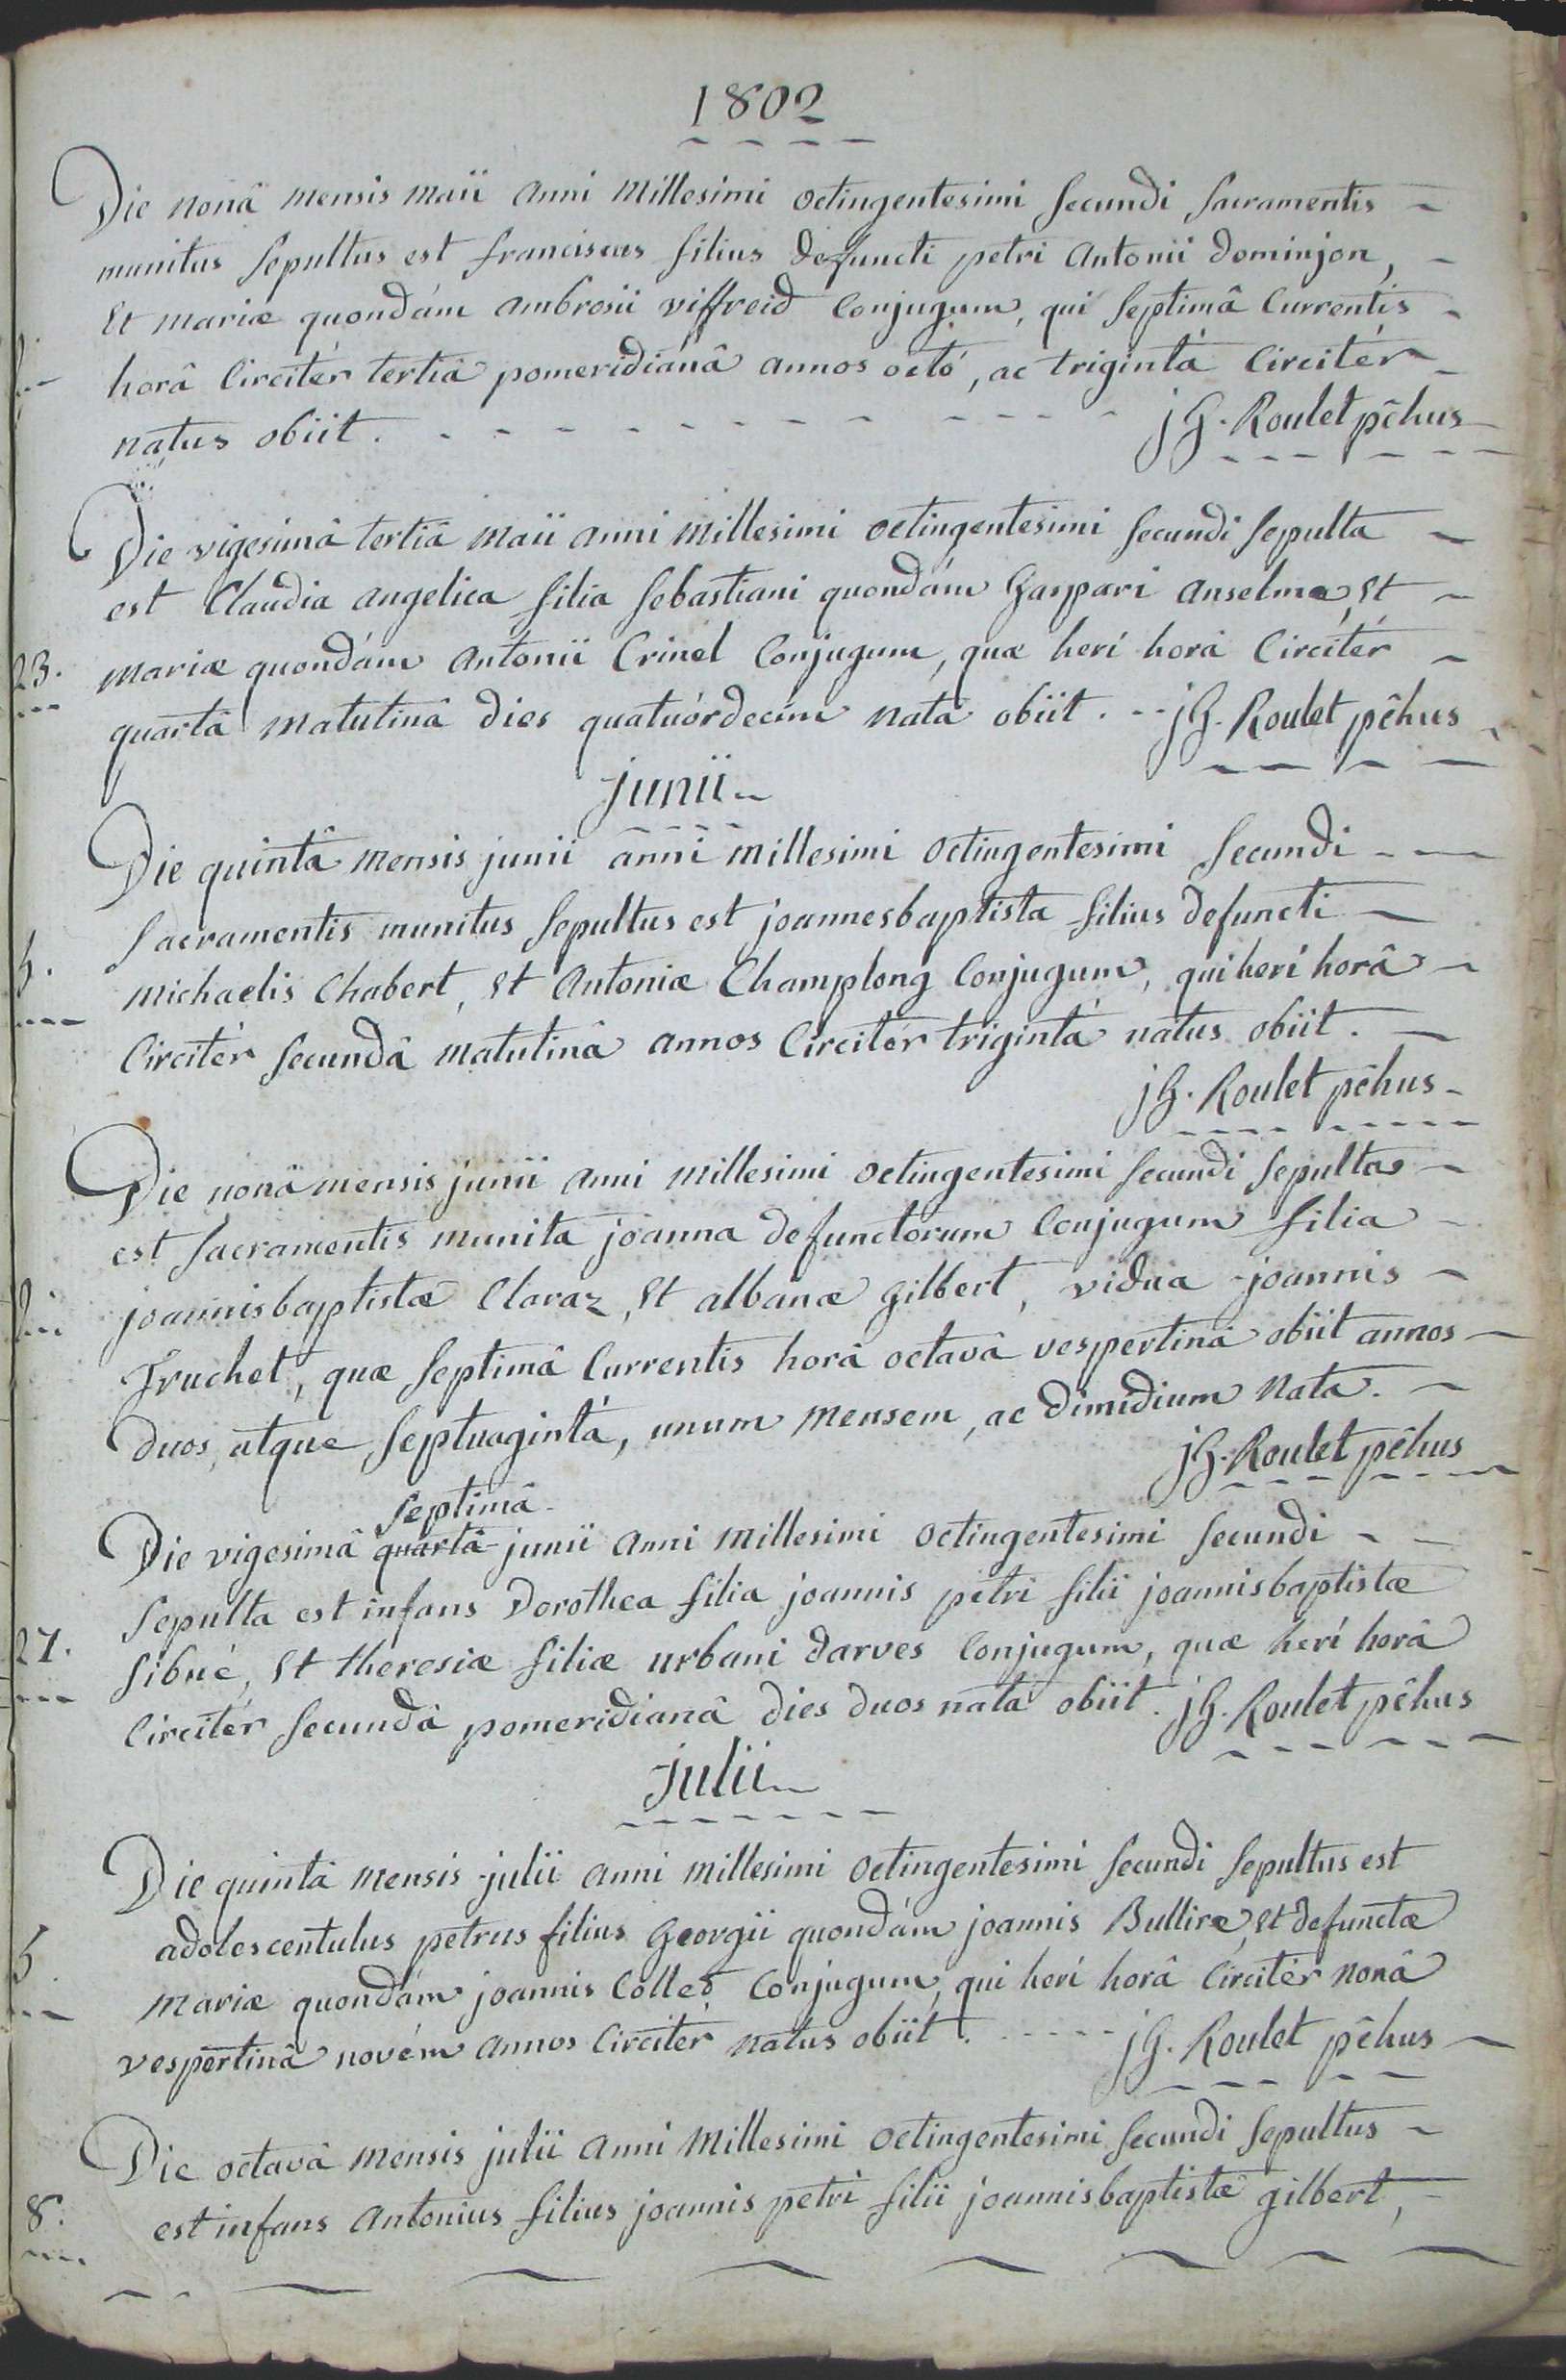 1802
Die nonâ mensis maii anni millesimi octingentesimi secundi sacramentis
munitus sepultus est franciscus filius defuncti petri antonii dominjon,
et mariæ quondám ambrosii viffreid conjugum, qui septimâ currentis
horâ circitér tertiâ pomeridianâ annos octó, ac trigintá circitér
natus obiit. jG. Roulet pc̃hus
Die vigesimâ tertiâ maii anni millesimi octingentesimi secundi sepulta
est Claudia angelica filia sebastiani quondám Gaspari anselme, et
23. mariæ quondám antonii Crinel conjugum, quæ herí horâ circitér
quartâ matutinâ dies quatuórdecím nata obiit. jG. Roulet pc̃hus
junii
Die quintâ mensis junii anni millesimi octingentesimi secundi
sacramentis munitus sepultus est joannesbaptista filius defuncti
5. michaelis Chabert, et antoniæ Champlong conjugum, qui herí horâ
circitér secundâ matutinâ annos circitér trigintá natus obiit.
jG. Roulet pc̃hus
Die nonâ mensis junii anni millesimi octingentesimi secundi sepulta
est sacramentis munita joanna defunctorum conjugum filia
joannisbaptistæ Claraz, et albanæ gilbert, vidua joannis
Truchet, quæ septimâ currentis horâ octavâ vespertinâ obiit annos
duos, atque septuagintá, unum mensem, ac dimidium nata.
jG. Roulet pc̃hus
septimâ
Die vigesimâ quartâ junii anni millesimi octingentesimi secundi
sepulta est infans Dorothea filia joannis petri filii joannisbaptistæ
27. sibué, et theresiæ filiæ urbani darves conjugum, quæ herí horâ
circitér secundâ pomeridianâ dies duos nata obiit. jG. Roulet pc̃hus
julii
Die quintâ mensis julii anni millesimi octingentesimi secundi sepultus est
adolescentulus petrus filius Georgii quondám joannis Bullire, et defunctæ
5. mariæ quondám joannis Colled conjugum, qui herí horâ circitér nonâ
vespertinâ novém annos circitér natus obiit. jG. Roulet pc̃hus
Die octavâ mensis julii anni millesimi octingentesimi secundi sepultus
8. est infans antonius filius joannis petri filii joannisbaptistæ gilbert,